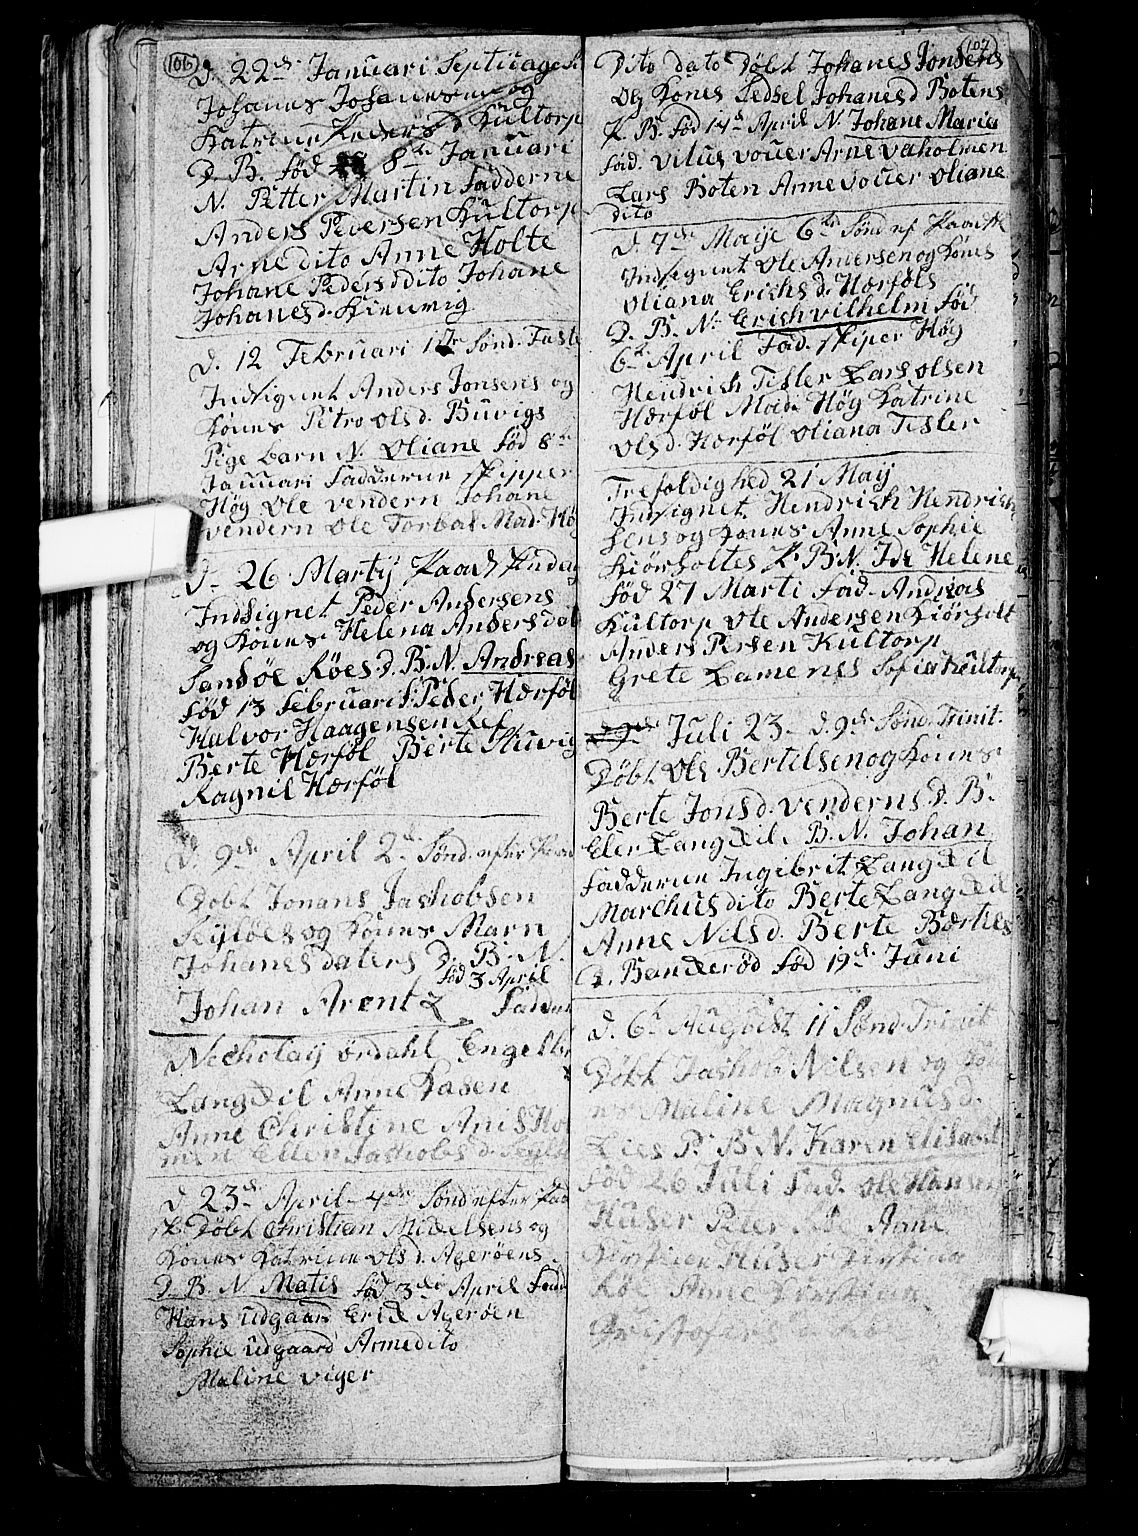 106
D. 22de Januari Septuages
Johannes Johannesen og
Katrine Peders d. Kultorp
D. B. fød 8de Januari
N. Petter Martin fadderne
Anders Pedersen Kultorp
Arne dito Anne Holte
Johane Peders d dito Johane
Johanes d.
D. 12 Februari 1te Sønd. Faste
Indsignet Anders Jonsens og
Kones Petro Ols d. Buvigs
Pige barn N. Oliane fød 8de
Januari Fadderne Skipper
Høg Ole vendern Johane
vendern Ole Torbal Mad. Høg
D. 26 Martij Paask
Indsignet Peder Andersens
og Kones Helena Anders dat
Sandøe Røes D. B. N. Andreas
fød 13 Februari F. Peder Herføl
Halvor Haagensen Ref
Berte Herføl Berte Stuvig
Ragnil Herføl
D. 9de April 2de Sønd. efter Paask
Døbt Jonans Jachobsen
Seyløes og Kones Marn
Johanes daters D. B. N.
fød 3 April
Johan Arentz Fadder
Necholay ordahl Engelbr
Langekil Anne Pasen
Anne Christine Anis Hol
men Ellen Jachobs d. Seyløe
D. 23de April 4de Sønd efter Paa
sk Døbt Christian Mickelsens og
Kones Katrine Ols d. Agerøens
D. B. N. Matis fød 3de April Fadd
Hans udgaard Erick Agerøen
Sophie udgaard Arne dito
Maline viger
107
Dito dato Døbt Johanes Jonsens
og Kones Sedsel Johanes d Botens
P. B. fød 14de April N. Johane Maria
fad. Vilus vouer Arne vaholmen
Lars Boten Arne vouer Oliane
dito
D. 7de Maye 6te Sønd ef. Paask
Indsignet Ole Andersen og Kones
Oliana Erichs d. Herføls
D. B. N. Erich vilhelm fød
6te April Fad. skiper Høg
Hendrich Tisler Lars olsen
Herføl Mad. Høg Katrine
Ols d. Herføl Oliana Tisler
Trefoldighed 21 Maij
Indsignet Hendrich Hendrich
sens og Kones Anne Sophie
Kiørholtes P. B. N. Ide Helene
fød 27 Marti fad. Andreas
Kultorp Ole Andersen Kiørholt
Anders Persen Kultorp
Grete Lamenss Sofia Kultorp
Juli 23 D. 9de Sønd. Trinit.
Døbt Ole Bertelsen og Kones
Berte Jons d. venderns D. B.
Eler Langekil B. N. Johan
fadderne Ingebrit Langekil
Marchus dito Berte Langekil
Anne Nils d. Berte Bertels
D. Bankerød fød 19de Juni
D. 6te August 11 Sønd. Trinit
Døbt Jachob Nilsen og Ko
nes Maline Magnus d.
Lies P. B. N. Karen Elisabet
fød 26 Juli fad. Ole Hansen
Huser Peter Røe Anne
Huser Kirstina
Røe Anne Kirstina